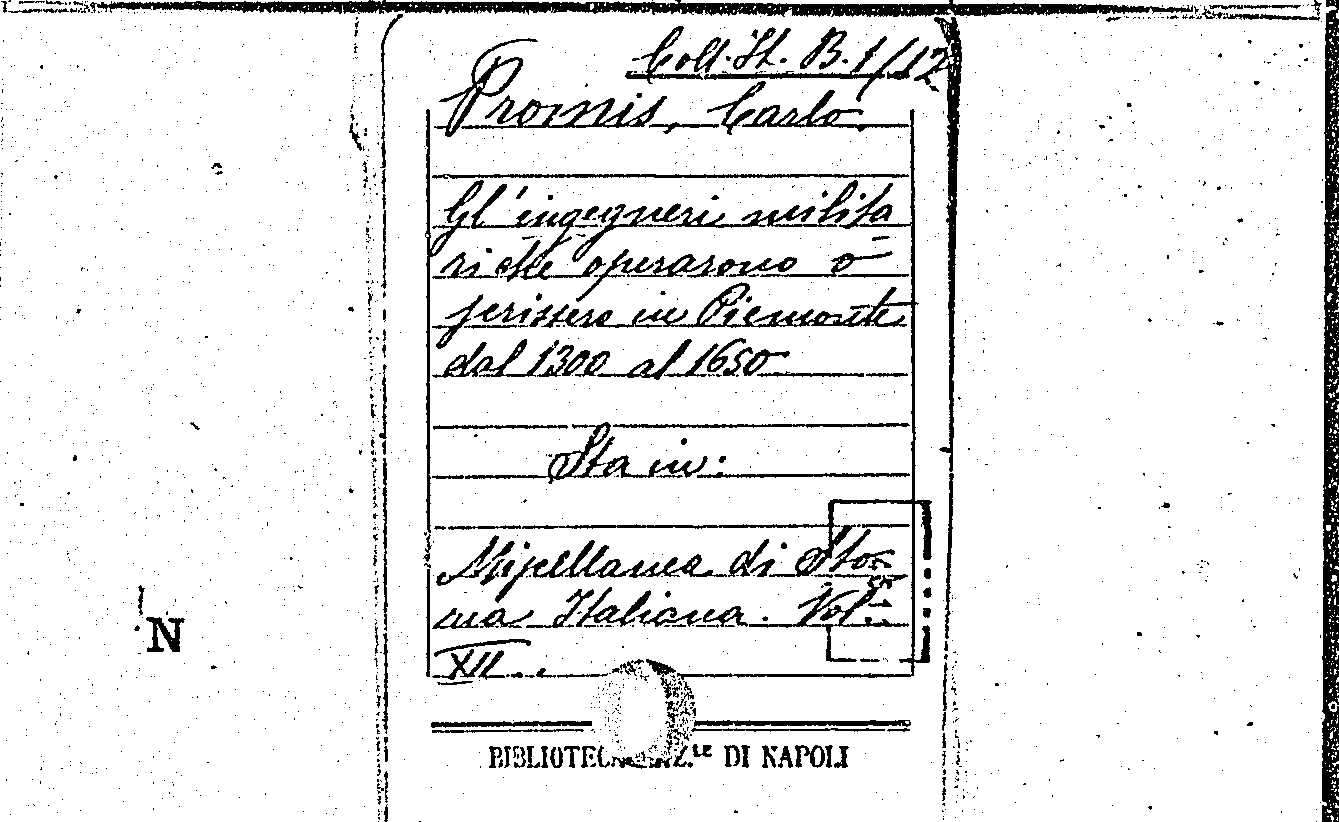 Coll. It. B. 1/12
Promis, Carlo.
Gl'ingegneri milita
ri che operarono o
ferissero in Piemonte
dal 1300 al 1650
Sta in:
Miscellanea di Sto-
ria Italiana. Vol.
XII..
N
BIBLIOTECA DI NAPOLI